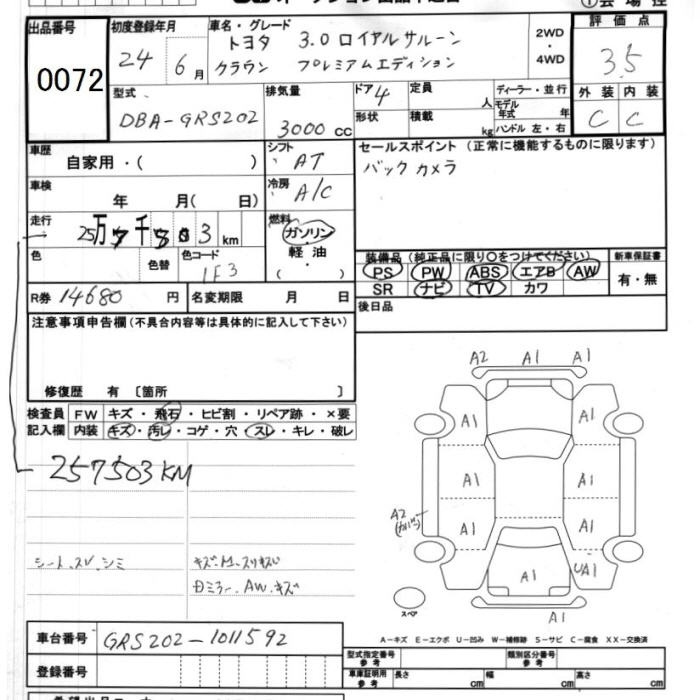 出品番号
0072
初度登録年月
24 6月
車名・グレード
トヨタ 3.0 ロイヤルサルーン
クラウン プレミアムエディション
2WD
・
4WD
評価点
3.5
外装 内装
C C
型式
DBA-GRS202
排気量
3000 cc
ドア 4
形状
定員 人
積載 kg
ディーラー・並行
モデル年式 年
ハンドル 左・右
車歴
自家用・( )
シフト
AT
車検
年 月( 日)
冷房
A/C
走行
25万7千503km
燃料
ガソリン
軽油
( )
色
色替
色コード
1F3
R券 14680 円
名変期限 月 日
セールスポイント (正常に機能するものに限ります)
バックカメラ
装備品 (純正品に限り○をつけてください)
PS PW ABS エアB AW
SR ナビ TV カワ
新車保証書
有・無
後日品
注意事項申告欄(不具合内容等は具体的に記入して下さい)
修復歴 有 〔箇所 〕
検査員記入欄
FW キズ・飛石・ヒビ割・リペア跡・×要
内装 キズ・汚レ・コゲ・穴・スレ・キレ・破レ
257503KM
シート、スレ、シミ
AW、キズ
A2 A1 A1
A1 A1
A1 A1
A2
A1 A1
A1 UA1
スペア
A1
A-キズ E-エクボ U-凹み W-補修跡 S-サビ C-腐食 XX-交換済
車台番号 GRS202-1011592
登録番号
型式指定番号 参考
類別区分番号 参考
車庫証明用 参考 長さ cm 幅 cm 高さ cm